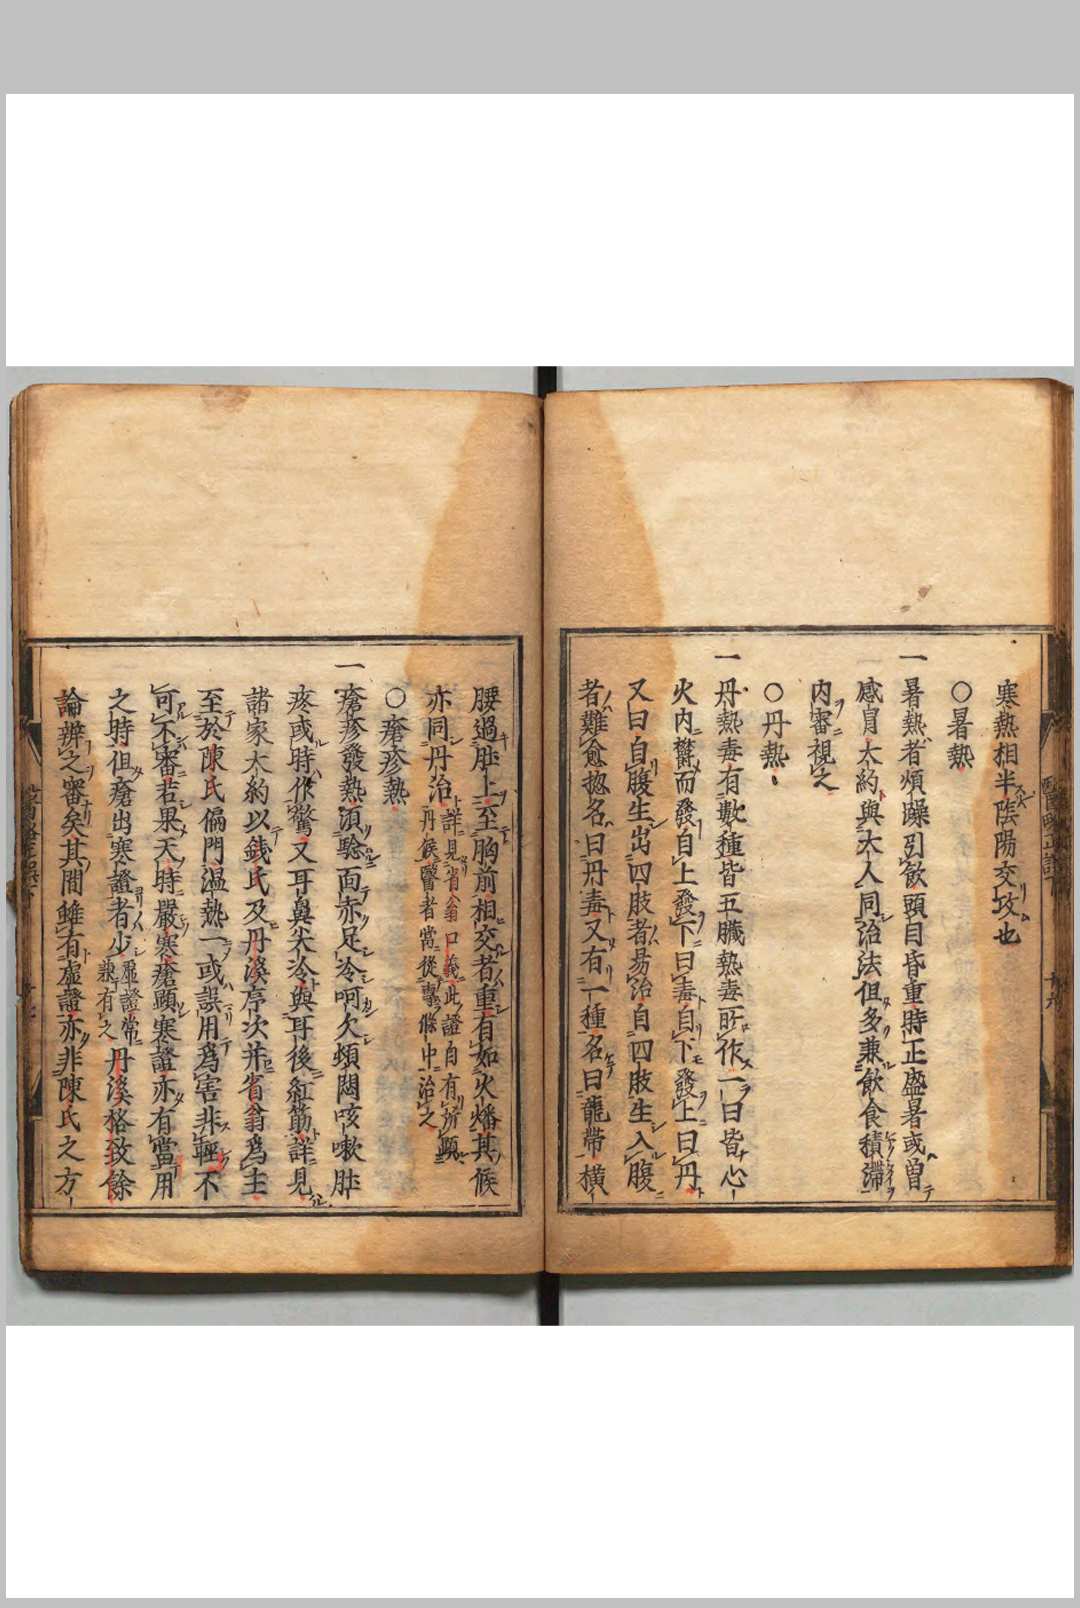 寒熱相半陰陽交攻也
○暑熱
一暑熱者煩躁引飲頭目昏重時正盛暑或曾
感冐太約與大人同治法但多兼飲食積滯
内審視之
○丹熱
一丹熱毒有數種皆五臓熱毒所作一曰皆心
火内欝而發自上發下曰毒自下發上曰丹
又曰自腹生出四肢者易治自四肢生入腹
者難愈惣名曰丹毒又有一種名曰龍帶横
腰過肚上至胸前相交者重有如火燔其候
亦同丹治詳見省翁口義此證自有所顯
丹候醫者當從驚條中治之
○瘡疹熱
一瘡疹發熱須驗面赤足冷呵欠煩悶咳嗽肚
疼或時作驚又耳鼻尖冷與耳後紅筋詳見
諸家大約以錢氏及丹溪序次并省翁爲主
至於陳氏偏門温熱一或誤用爲害非輕不
可不審若果天時嚴寒瘡顯寒證亦有當用
之時但瘡出寒證者少虚證常
兼有之丹溪格致餘
論辨之審矣其間雖有虚證亦非陳氏之方